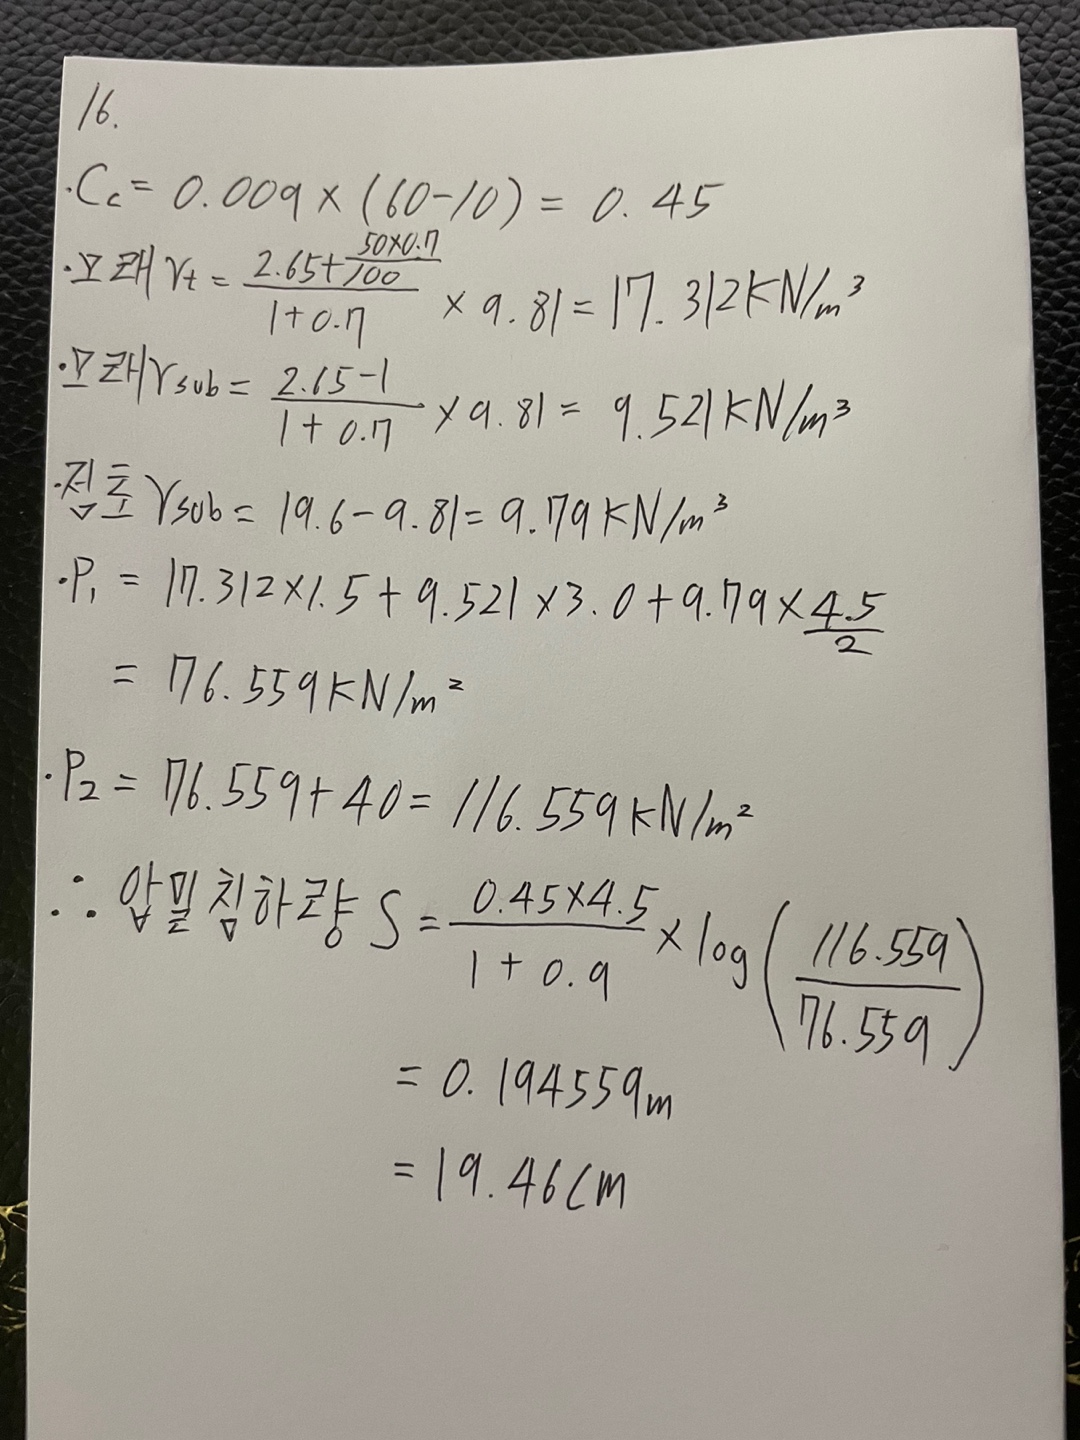 16.
·Cc = 0.009 × (60-10) = 0.45
·모래 γt = (2.65 + (50×0.7)/100)/(1+0.7) × 9.81 = 17.312KN/m³
·모래 γsub = (2.65-1)/(1+0.7) × 9.81 = 9.521KN/m³
·점토 γsub = 19.6 - 9.81 = 9.79KN/m³
·P₁ = 17.312×1.5 + 9.521×3.0 + 9.79×4.5/2
= 76.559KN/m²
·P₂ = 76.559 + 40 = 116.559KN/m²
∴ 압밀침하량 S = (0.45×4.5)/(1+0.9) × log(116.559/76.559)
= 0.194559m
= 19.46Cm